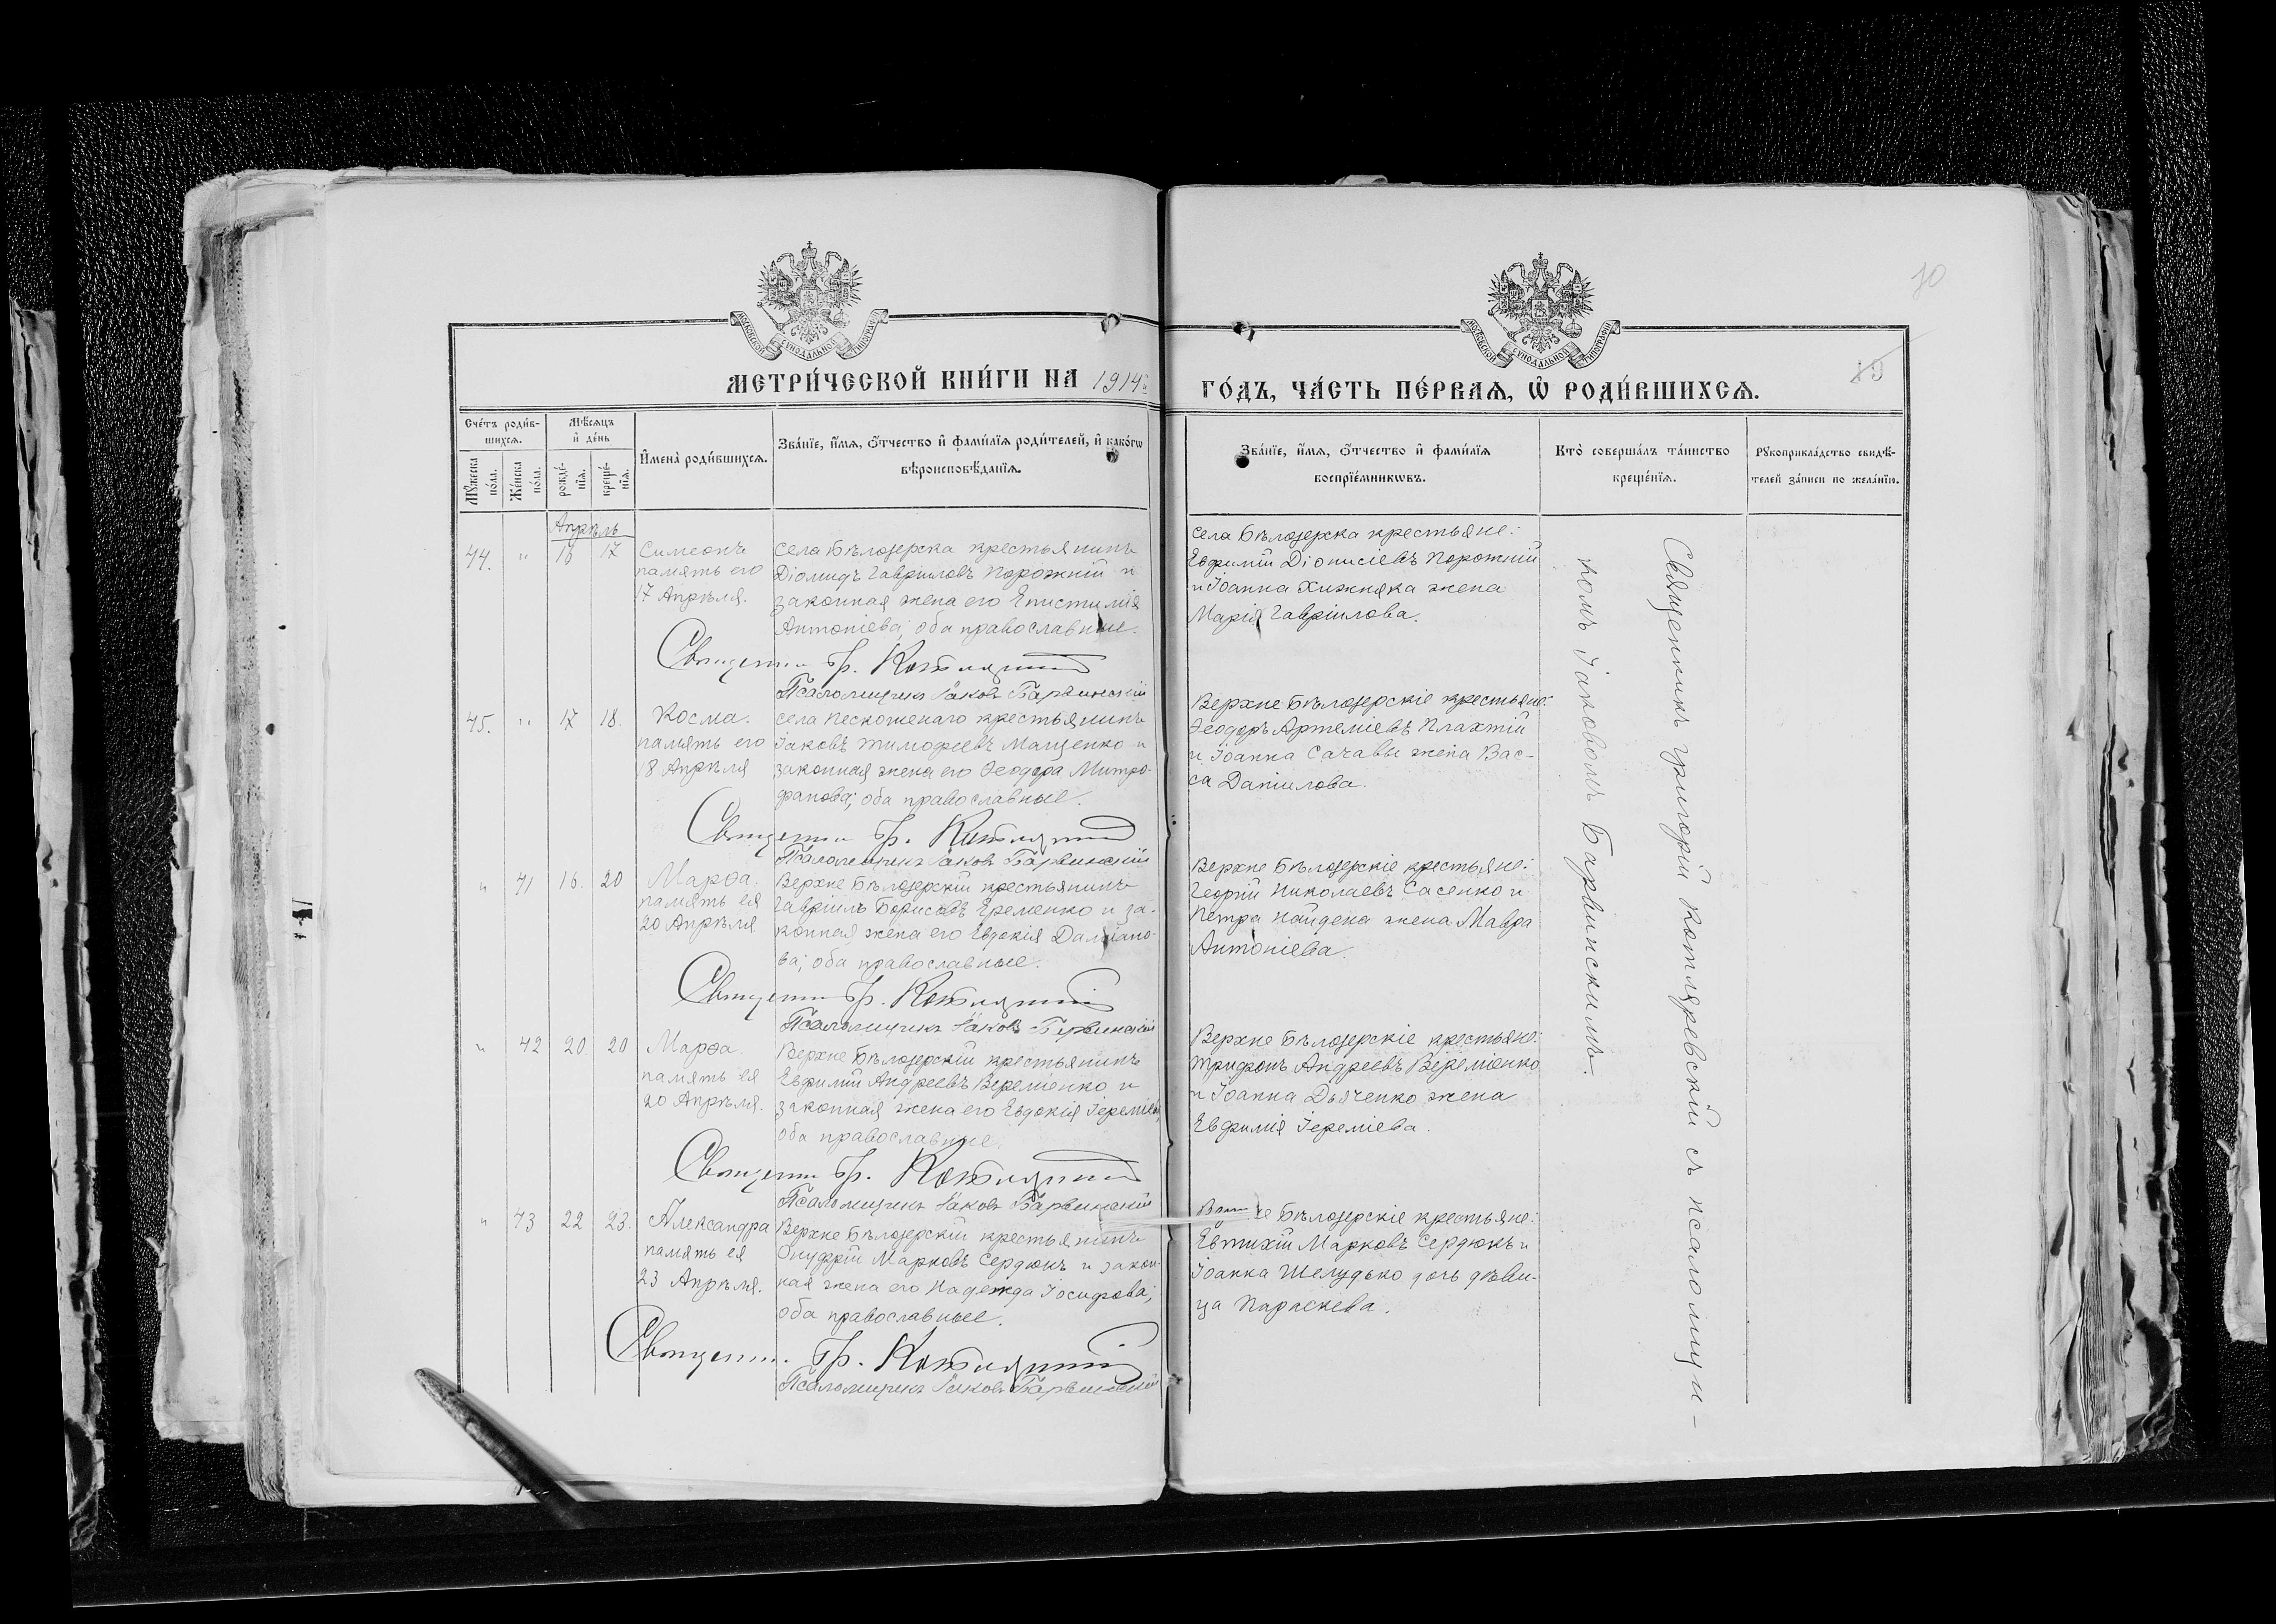 70
13
МОСКОВСКОЙ СУНОДАЛЬНОЙ ТИПОГРАФІИ
МОСКОВСКОЙ СУНОДАЛЬНОЙ ТИПОГРАФІИ
МЕТРИ́ЧЕСКОЙ КНИ́ГИ НА 1914й
ГО́ДЪ, ЧА́СТЬ ПЕ́РВАѦ, Ѡ҆ РОДИ́ВШИХСѦ.
Сче́тъ роди́в-
шихсѧ.
Му́жеска по́ла.
Же́нска по́ла.
Мѣ́сѧцъ
и҆ де́нь
рожде́-
нїѧ.
креще́-
нїѧ.
И҆мена̀ роди́вшихсѧ.
Зва́нїе, и҆́мѧ, ѻ҆́тчество и҆ фами́лїѧ роди́телей, и҆ како́гѡ
вѣроисповѣ́данїѧ.
Зва́нїе, и҆́мѧ, ѻ҆́тчество и҆ фами́лїѧ
воспрїе́мникѡвъ.
Кто̀ соверша́лъ та́инство
креще́нїѧ.
Рꙋкоприкла́дство свидѣ́-
телей за́писи по жела́нїю.
Апрѣль
44. " 16 17
Симеонъ
память его
17 Апрѣля.
села Бѣлозерска крестьянинъ
Діомидъ Гавріиловъ Порожній и
законная жена его Епистимія
Антоніева; оба православные.
Священн. Гр. Котляревскій
Псаломщикъ Іаковъ Барвинскій
села Бѣлозерска крестьяне:
Евфимій Діонисіевъ Порожній
и Іоанна Хижняка жена
Марія Гавріилова.
45. " 17 18.
Косма.
память его
18 Апрѣля
села Пескошенаго крестьянинъ
Іаковъ Тимофеевъ Мащенко и
законная жена его Ѳеодора Митро-
фанова; оба православные.
Священн. Гр. Котляревскій
Псаломщикъ Іаковъ Барвинскій
Верхне Бѣлозерскіе крестьяне:
Ѳеодоръ Артеміевъ Плахтій
и Іоанна Сачавы жена Вас-
са Даніилова.
" 41 16. 20
Марѳа.
память ея
20 Апрѣля
Верхне Бѣлозерскій крестьянинъ
Гавріилъ Борисовъ Еременко и за-
конная жена его Евдокія Даміано-
ва; оба православные.
Священн. Гр. Котляревскій
Псаломщикъ Іаковъ Барвинскій
Верхне Бѣлозерскіе крестьяне:
Георгій Николаевъ Сасенко и
Петра Найдена жена Мавра
Антоніева.
" 42 20 20
Марѳа
память ея
20 Апрѣля.
Верхне Бѣлозерскій крестьянинъ
Евфимій Андреевъ Веременко и
законная жена его Евдокія Іереміева
оба православные.
Священн. Гр. Котляревскій
Псаломщикъ Іаковъ Барвинскій
Верхне Бѣлозерскіе крестьяне:
Трифонъ Андреевъ Веременко
и Іоанна Дьяченко жена
Евфимія Іереміева.
" 43 22 23.
Александра
память ея
23 Апрѣля.
Верхне Бѣлозерскій крестьянинъ
Онуфрій Марковъ Сердюкъ и закон-
ная жена его Надежда Іосифова;
оба православные.
Священн. Гр. Котляревскій
Псаломщикъ Іаковъ Барвинскій
Верхне Бѣлозерскіе крестьяне:
Евтихій Марковъ Сердюкъ и
Іоанна Шелудько дочь дѣви-
ца Параскева.
Священникъ Григорій Котляревскій съ псаломщи-
комъ Іаковомъ Барвинскимъ.